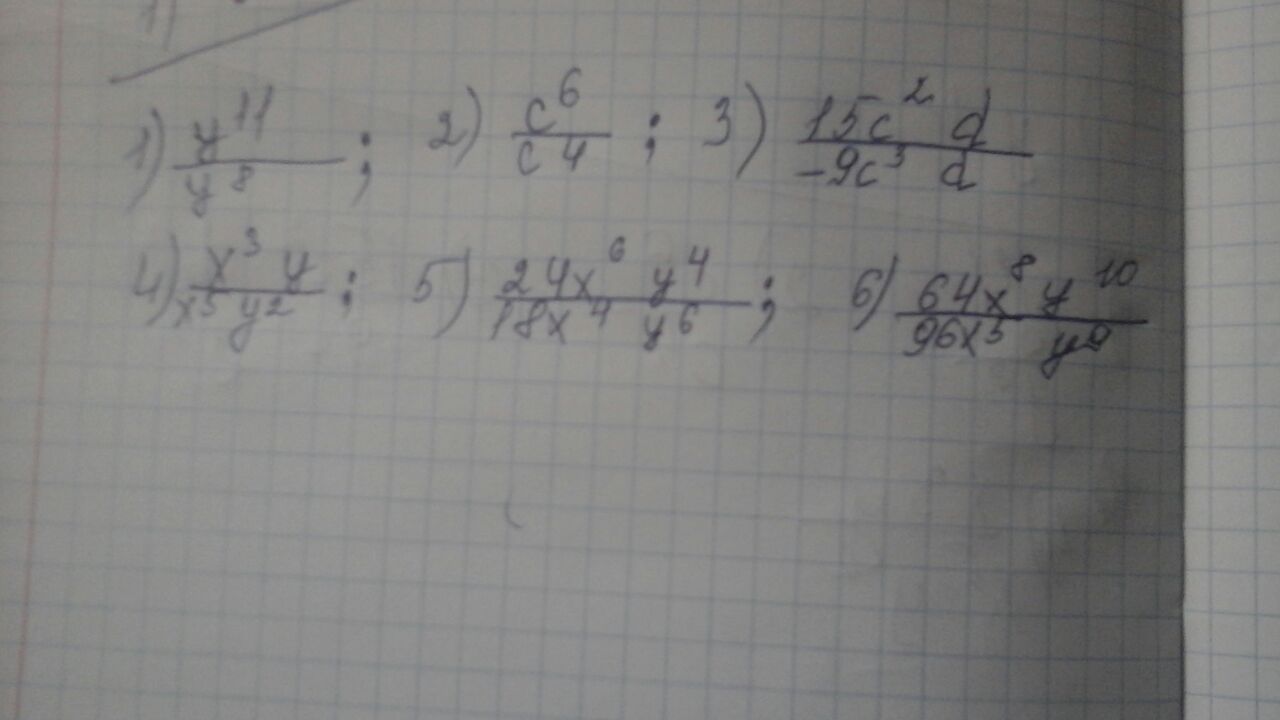 1)
1) y¹¹/y⁸ ; 2) c⁶/c⁴ ; 3) 15c² d/-9c³ d
4) x³ y/x⁵ y² ; 5) 24x⁶ y⁴/18x⁴ y⁶ ; 6) 64x⁸ y¹⁰/96x⁵ y⁹